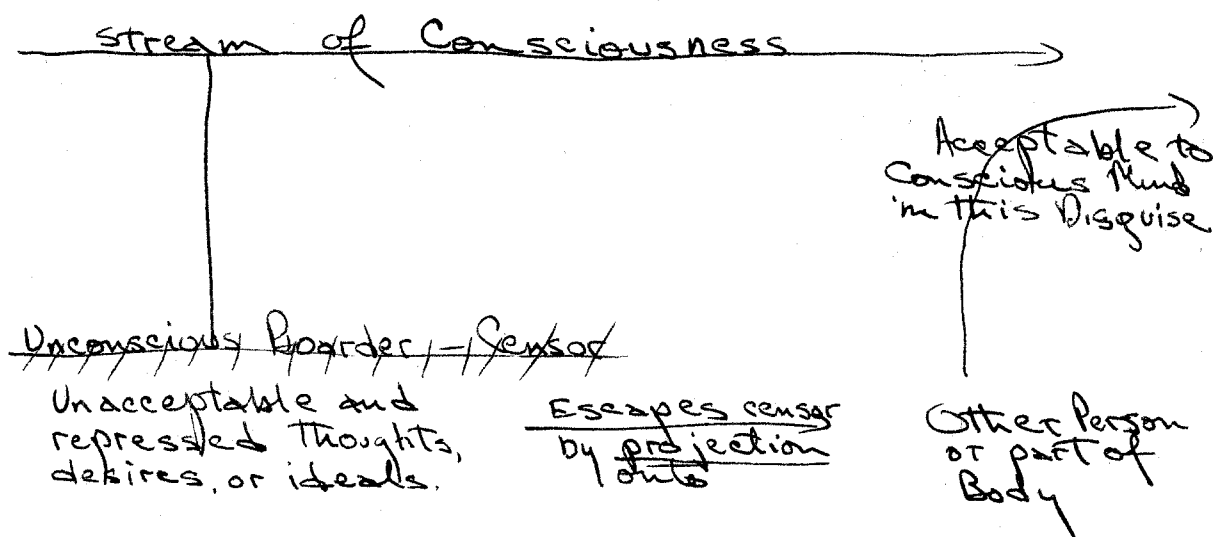 Stream of Consciousness
Acceptable to
Conscious Mind
in this Disguise
Unconscious Boarder - Censor
Unacceptable and
repressed Thoughts,
desires, or ideals.
Escapes censor
by projection
onto
Other Person
or part of
Body